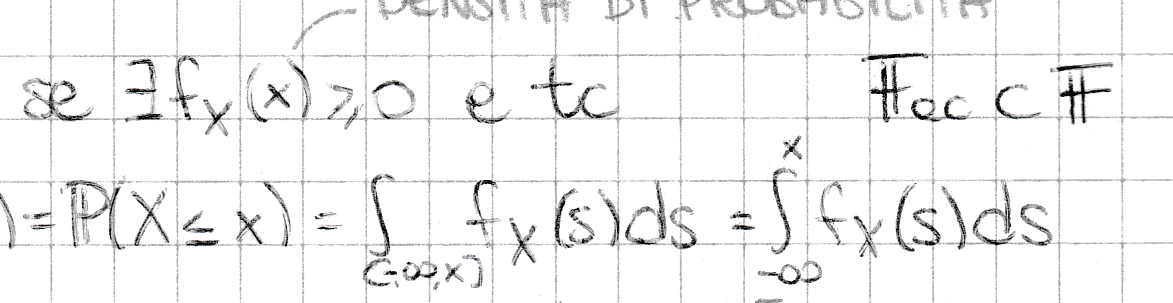 DENSITÀ DI PROBABILITÀ
se ∃ f_X(x) ⩾ 0 e tc 𝔽_ec ⊂ 𝔽
) = ℙ(X ≤ x) = ∫_(-∞,x] f_X(s)ds = ∫_{-∞}^{x} f_X(s)ds